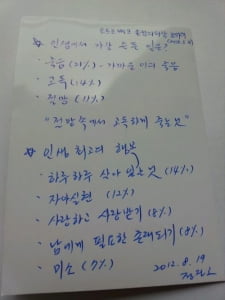 ※ 인생에서 가장 슬픈 일은?
· 죽음 (21%) - 가까운 이의 죽음
· 고독 (14%)
· 절망 (11%)
"절망속에서 고독하게 죽는것"
※ 인생 최고의 행복
· 하루하루 살아 있는 것 (14%)
· 자아실현 (12%)
· 사랑하고 사랑받기 (8%)
· 남에게 필요한 존재되기 (8%)
· 미소 (7%)
2012. 8. 19